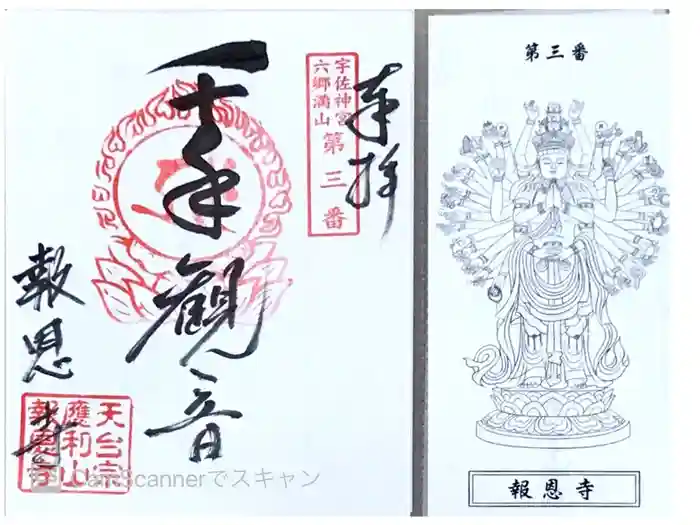 奉拝
宇佐神宮
六郷満山
第三番
千手觀音
報恩寺
天台宗
應利山
報恩寺
CamScannerでスキャン
第三番
報恩寺